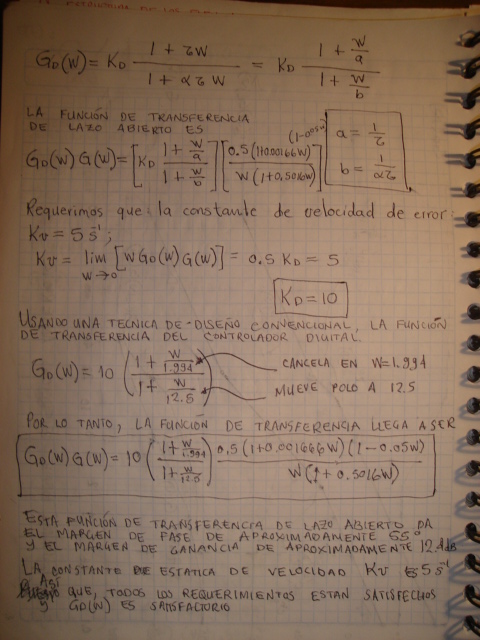 G_D(W) = K_D (1 + τW)/(1 + ατW) = K_D (1 + W/a)/(1 + W/b)
LA FUNCIÓN DE TRANSFERENCIA
DE LAZO ABIERTO ES
G_D(W) G(W) = [K_D (1 + W/a)/(1 + W/b)] [0.5(1+0.00166W)(1-0.05W)/(W(1+0,5016W))]
a = 1/τ
b = 1/(ατ)
Requerimos que la constante de velocidad de error:
Kv = 5 s⁻¹;
Kv = lim W→0 [W G_D(W) G(W)] = 0.5 K_D = 5
K_D = 10
USANDO UNA TECNICA DE DISEÑO CONVENCIONAL, LA FUNCIÓN
DE TRANSFERENCIA DEL CONTROLADOR DIGITAL.
G_D(W) = 10 ((1 + W/1.994)/(1 + W/12.5))
CANCELA EN W=1.994
MUEVE POLO A 12.5
POR LO TANTO, LA FUNCIÓN DE TRANSFERENCIA LLEGA A SER
G_D(W) G(W) = 10 ((1 + W/1.994)/(1 + W/12.5)) 0,5(1+0.001666W)(1-0.05W)/(W(1+0.5016W))
ESTA FUNCIÓN DE TRANSFERENCIA DE LAZO ABIERTO DA
EL MARGEN DE FASE DE APROXIMADAMENTE 55°
Y EL MARGEN DE GANANCIA DE APROXIMADAMENTE 12.4dB
LA CONSTANTE ESTATICA DE VELOCIDAD Kv ES 5 s⁻¹
ASI QUE, TODOS LOS REQUERIMIENTOS ESTAN SATISFECHOS
Y G_D(W) ES SATISFACTORIO